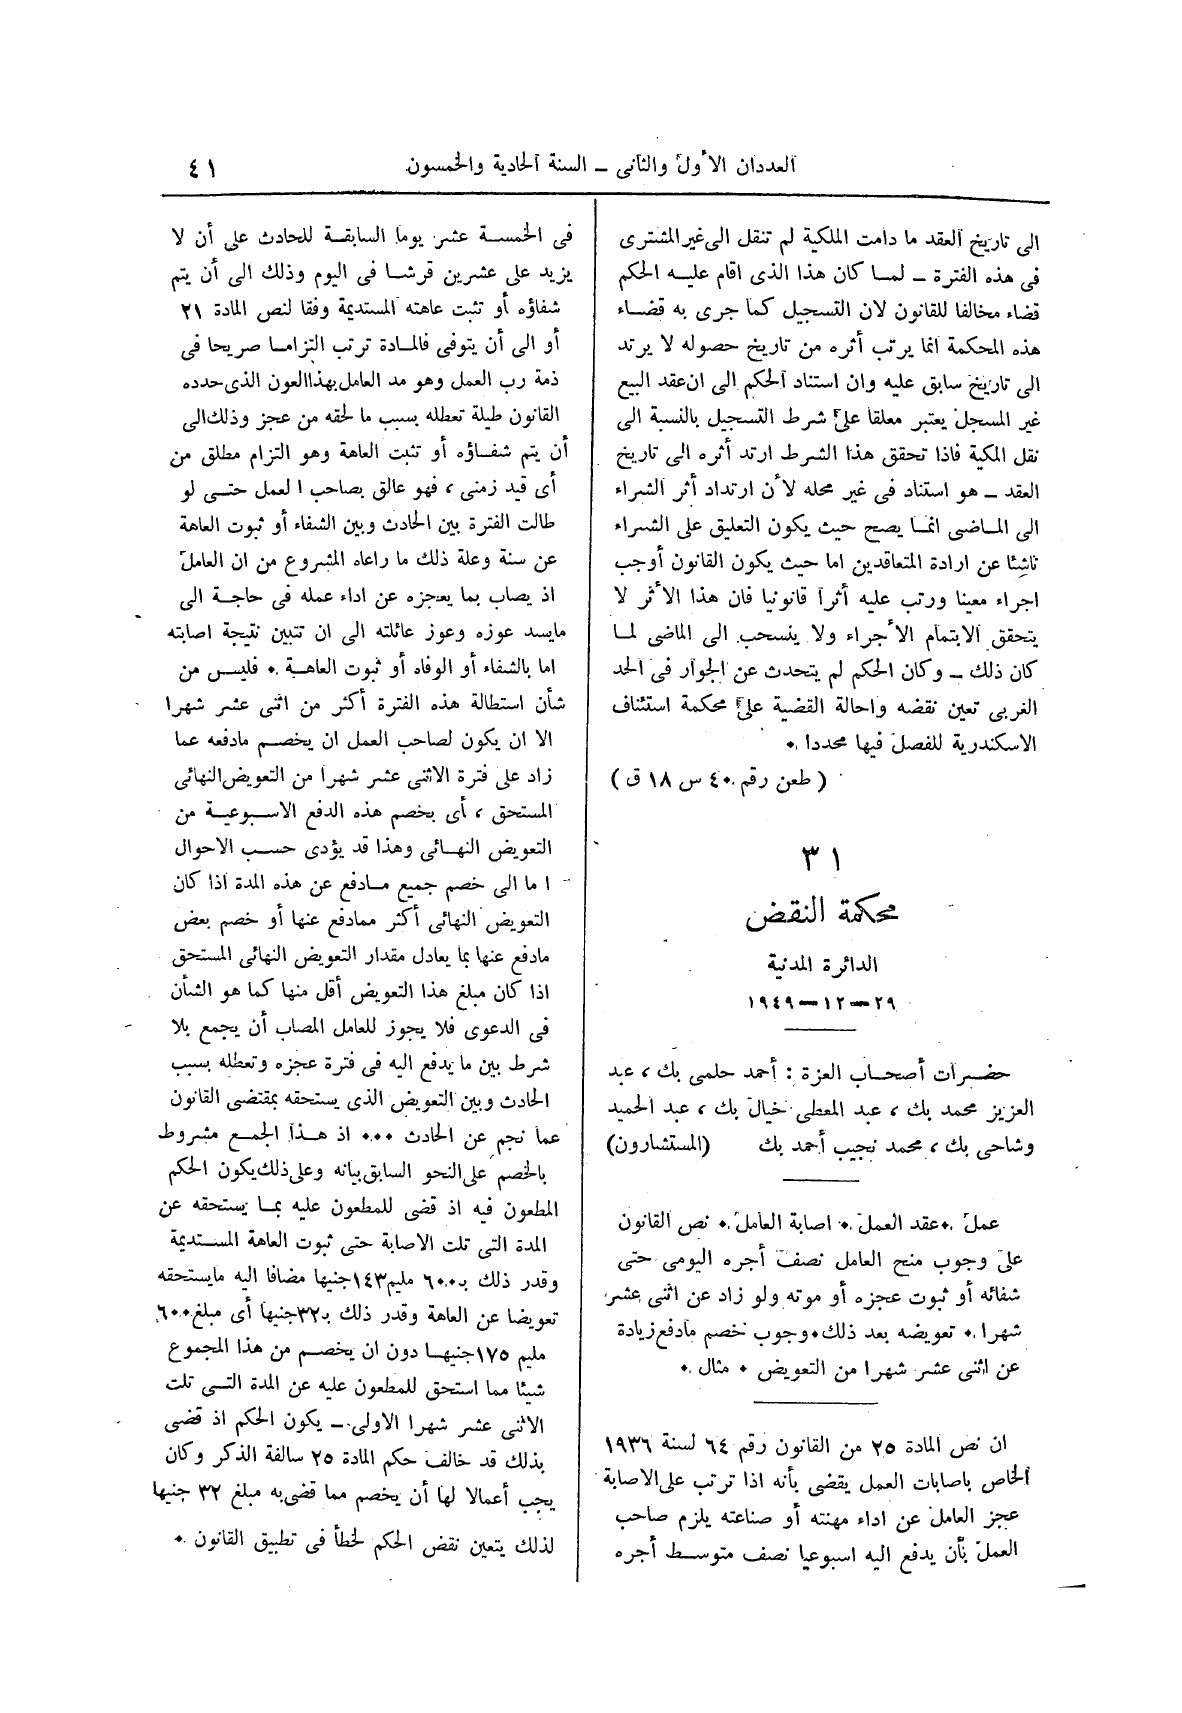 العددان الأول والثانى ــ السنة الحادية والخمسون
٤١
الى تاريخ العقد ما دامت الملكية لم تنقل الى غير المشترى
فى هذه الفترة ــ لمــا كان هذا الذى اقام عليــه الحكم
قضاء مخالفا للقانون لان التسجيل كما جرى به قضــاء
هذه المحكمة انما يرتب أثره من تاريخ حصوله لا يرتد
الى تاريخ سابق عليه وان استناد الحكم الى ان عقد البيع
غير المسجل يعتبر معلقا على شرط التسجيل بالنسبة الى
نقل المكية فاذا تحقق هذا الشرط ارتد أثره الى تاريخ
العقد ــ هو استناد فى غير محله لأن ارتداد أثر الشراء
الى المــاضى انمــا يصح حيث يكون التعليق على الشراء
ناشئا عن ارادة المتعاقدين اما حيث يكون القانون أوجب
اجراء معينا ورتب عليه أثرا قانونيا فان هذا الأثر لا
يتحقق الابتمام الأجراء ولا ينسحب الى الماضى لمــا
كان ذلك ــ وكان الحكم لم يتحدث عن الجوار فى الحد
الغربى تعين نقضه واحالة القضية على محكمة استئناف
الاسكندرية للفصل فيها مجددا .
( طعن رقم ٤٠ س ١٨ ق )
٣١
محكمة النقض
الدائرة المدنية
٢٩ــ١٢ــ١٩٤٩
حضــرات أصحــاب العزة : أحمد حلمى بك ، عبد
العزيز محمد بك ، عبد المعطى خيال بك ، عبد الحميد
وشاحى بك ، محمد نجيب أحمد بك (المستشارون)
عمل . عقد العمل . اصابة العامل . نص القانون
على وجوب منح العامل نصف أجره اليومى حتى
شفائه أو ثبوت عجزه أو موته ولو زاد عن اثنى عشر
شهرا . تعويضه بعد ذلك . وجوب خصم مادفع زيادة
عن اثنى عشر شهرا من التعويض . مثال .
ان نص المادة ٢٥ من القانون رقم ٦٤ لسنة ١٩٣٦
الخاص باصابات العمل يقضى بأنه اذا ترتب على الاصابة
عجز العامل عن اداء مهنته أو صناعته يلزم صاحب
العمل بأن يدفع اليه اسبوعيا نصف متوســط أجره
فى الخمســة عشر يوما السابقــة للحادث على أن لا
يزيد على عشرين قرشــا فى اليوم وذلك الى أن يتم
شفاؤه أو تثبت عاهته المستديمة وفقا لنص المادة ٢١
أو الى أن يتوفى فالمــادة ترتب التزامــا صريحا فى
ذمة رب العمل وهو مد العامل بهذا العون الذى حدده
القانون طيلة تعطله بسبب ما لحقه من عجز وذلك الى
أن يتم شفــاؤه أو تثبت العاهة وهو التزام مطلق من
أى قيد زمنى ، فهو عالق بصاحب العمل حتــى لو
طالت الفترة بين الحادث وبين الشفاء أو ثبوت العاهة
عن سنة وعلة ذلك ما راعاه المشروع من ان العامل
اذ يصاب بما يعجزه عن اداء عمله فى حاجــة الى
مايسد عوزه وعوز عائلته الى ان تتبين نتيجة اصابته
اما بالشفاء أو الوفاه أو ثبوت العاهــة . فليس من
شأن استطالة هذه الفترة أكثر من اثنى عشر شهرا
الا ان يكون لصاحب العمل ان يخصــم مادفعه عما
زاد على فترة الاثنى عشر شهرا من التعويض النهائى
المستحق ، أى يخصم هذه الدفع الاسبوعيــة من
التعويض النهــائى وهذا قد يؤدى حسب الاحوال
ا ما الى خصم جميع مــادفع عن هذه المدة اذا كان
التعويض النهائى أكثر ممادفع عنها أو خصم بعض
مادفع عنها بما يعادل مقدار التعويض النهائى المستحق
اذا كان مبلغ هذا التعويض أقل منها كما هو الشأن
فى الدعوى فلا يجوز للعامل المصاب أن يجمع بلا
شرط بين ما يدفع اليه فى فترة عجزه وتعطله بسبب
الحادث وبين التعويض الذى يستحقه بمقتضى القانون
عما نجم عن الحادث ... اذ هــذا الجمع مشروط
بالخصم على النحو السابق بيانه وعلى ذلك يكون الحكم
المطعون فيه اذ قضى للمطعون عليه بمــا يستحقه عن
المدة التى تلت الاصابة حتى ثبوت العاهة المستديمة
وقدر ذلك بـ٦٠٠ مليم١٤٣جنيها مضافا اليه مايستحقه
تعويضا عن العاهة وقدر ذلك بـ٣٢جنيها أى مبلغ ٦٠٠
مليم ١٧٥جنيهــا دون ان يخصــم من هذا المجموع
شيئا مما استحق للمطعون عليه عن المدة التــى تلت
الاثنى عشر شهرا الاولى ــ يكون الحكم اذ قضى
بذلك قد خالف حكم المادة ٢٥ سالفة الذكر وكان
يجب أعمالا لها أن يخصم مما قضى به مبلغ ٣٢ جنيها
لذلك يتعين نقض الحكم لخطأ فى تطبيق القانون .